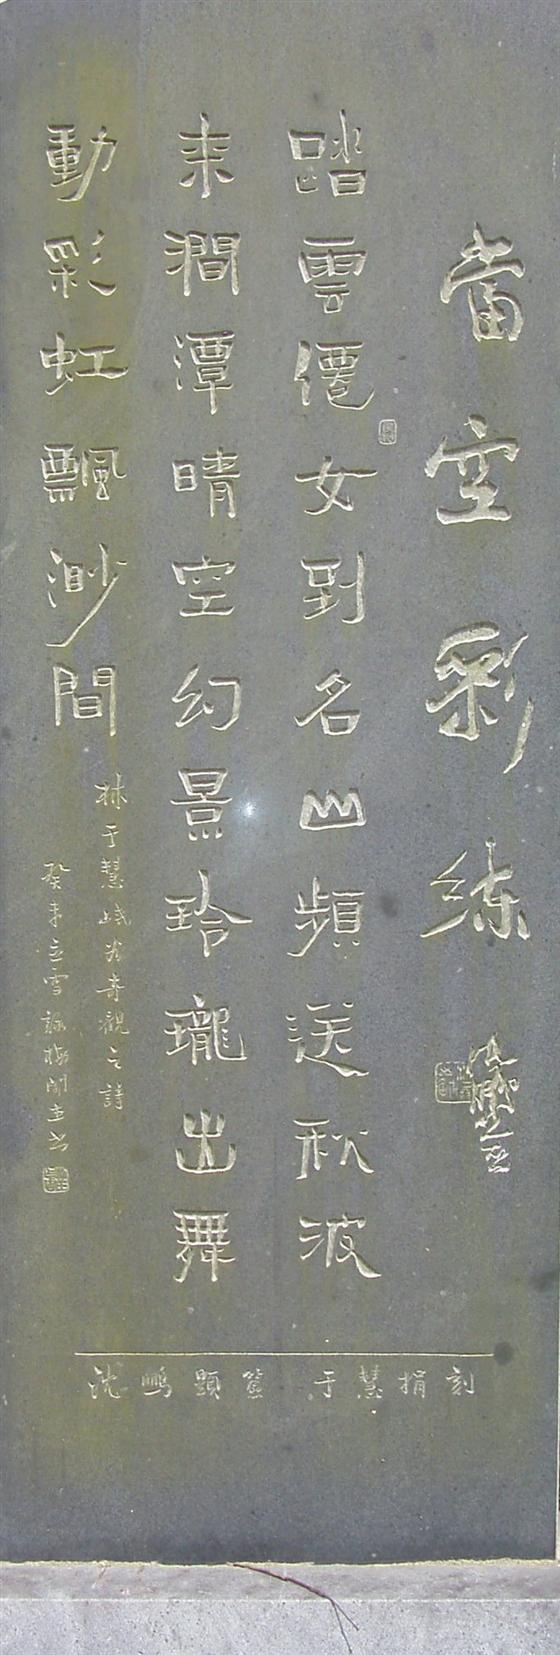 當空彩練
踏雲僊女到名山頻送秋波
来澗潭晴空幻景玲瓏出舞
動彩虹飄渺間
林于慧峨眉奇觀之詩
癸未立雪梅閣主书
沈鵬題簽 于慧捐刻